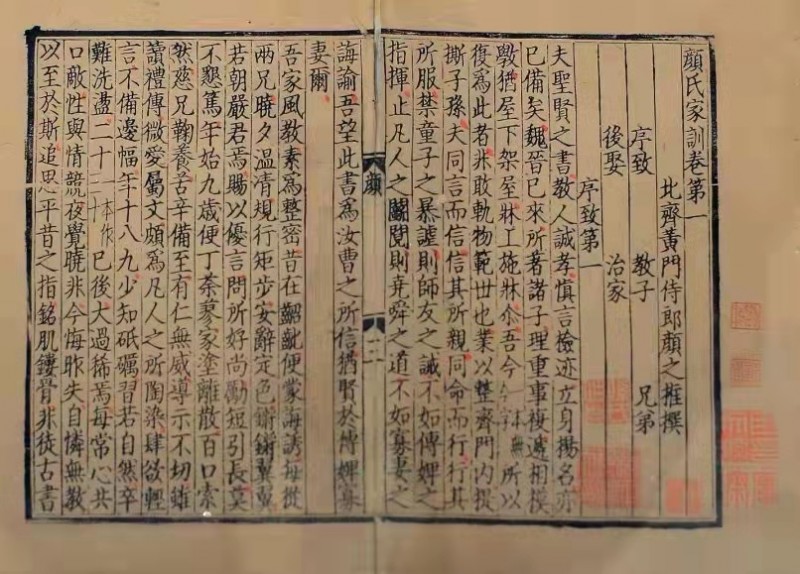 顏氏家訓卷第一
北齊黃門侍郎顏之推撰
序致 教子 兄弟
後娶 治家
序致第一
夫聖賢之書教人誠孝慎言檢迹立身揚名亦
已備矣魏晉已來所著諸子理重事複遞相模
斆猶屋下架屋牀上施牀尒吾今所以
復爲此者非敢軌物範世也業以整齊門内提
撕子孫夫同言而信信其所親同命而行行其
所服禁童子之暴謔則師友之誡不如傅婢之
指揮止凡人之鬭鬩則堯舜之道不如寡妻之
顏
誨諭吾望此書爲汝曹之所信猶賢於傅婢寡
妻爾
吾家風教素爲整密昔在齠齔便蒙誨誘每從
兩兄曉夕温凊規行矩步安辭定色鏘鏘翼翼
若朝嚴君焉賜以優言問所好尚勵短引長莫
不懇篤年始九歲便丁荼蓼家塗離散百口索
然慈兄鞠養苦辛備至有仁無威導示不切雖
讀禮傳微愛屬文頗爲凡人之所陶染肆欲輕
言不備邊幅年十八九少知砥礪習若自然卒
難洗盪二十一本作三十已後大過稀焉每常心共
口敵性與情競夜覺曉非今悔昨失自憐無教
以至於斯追思平昔之指銘肌鏤骨非徒古書